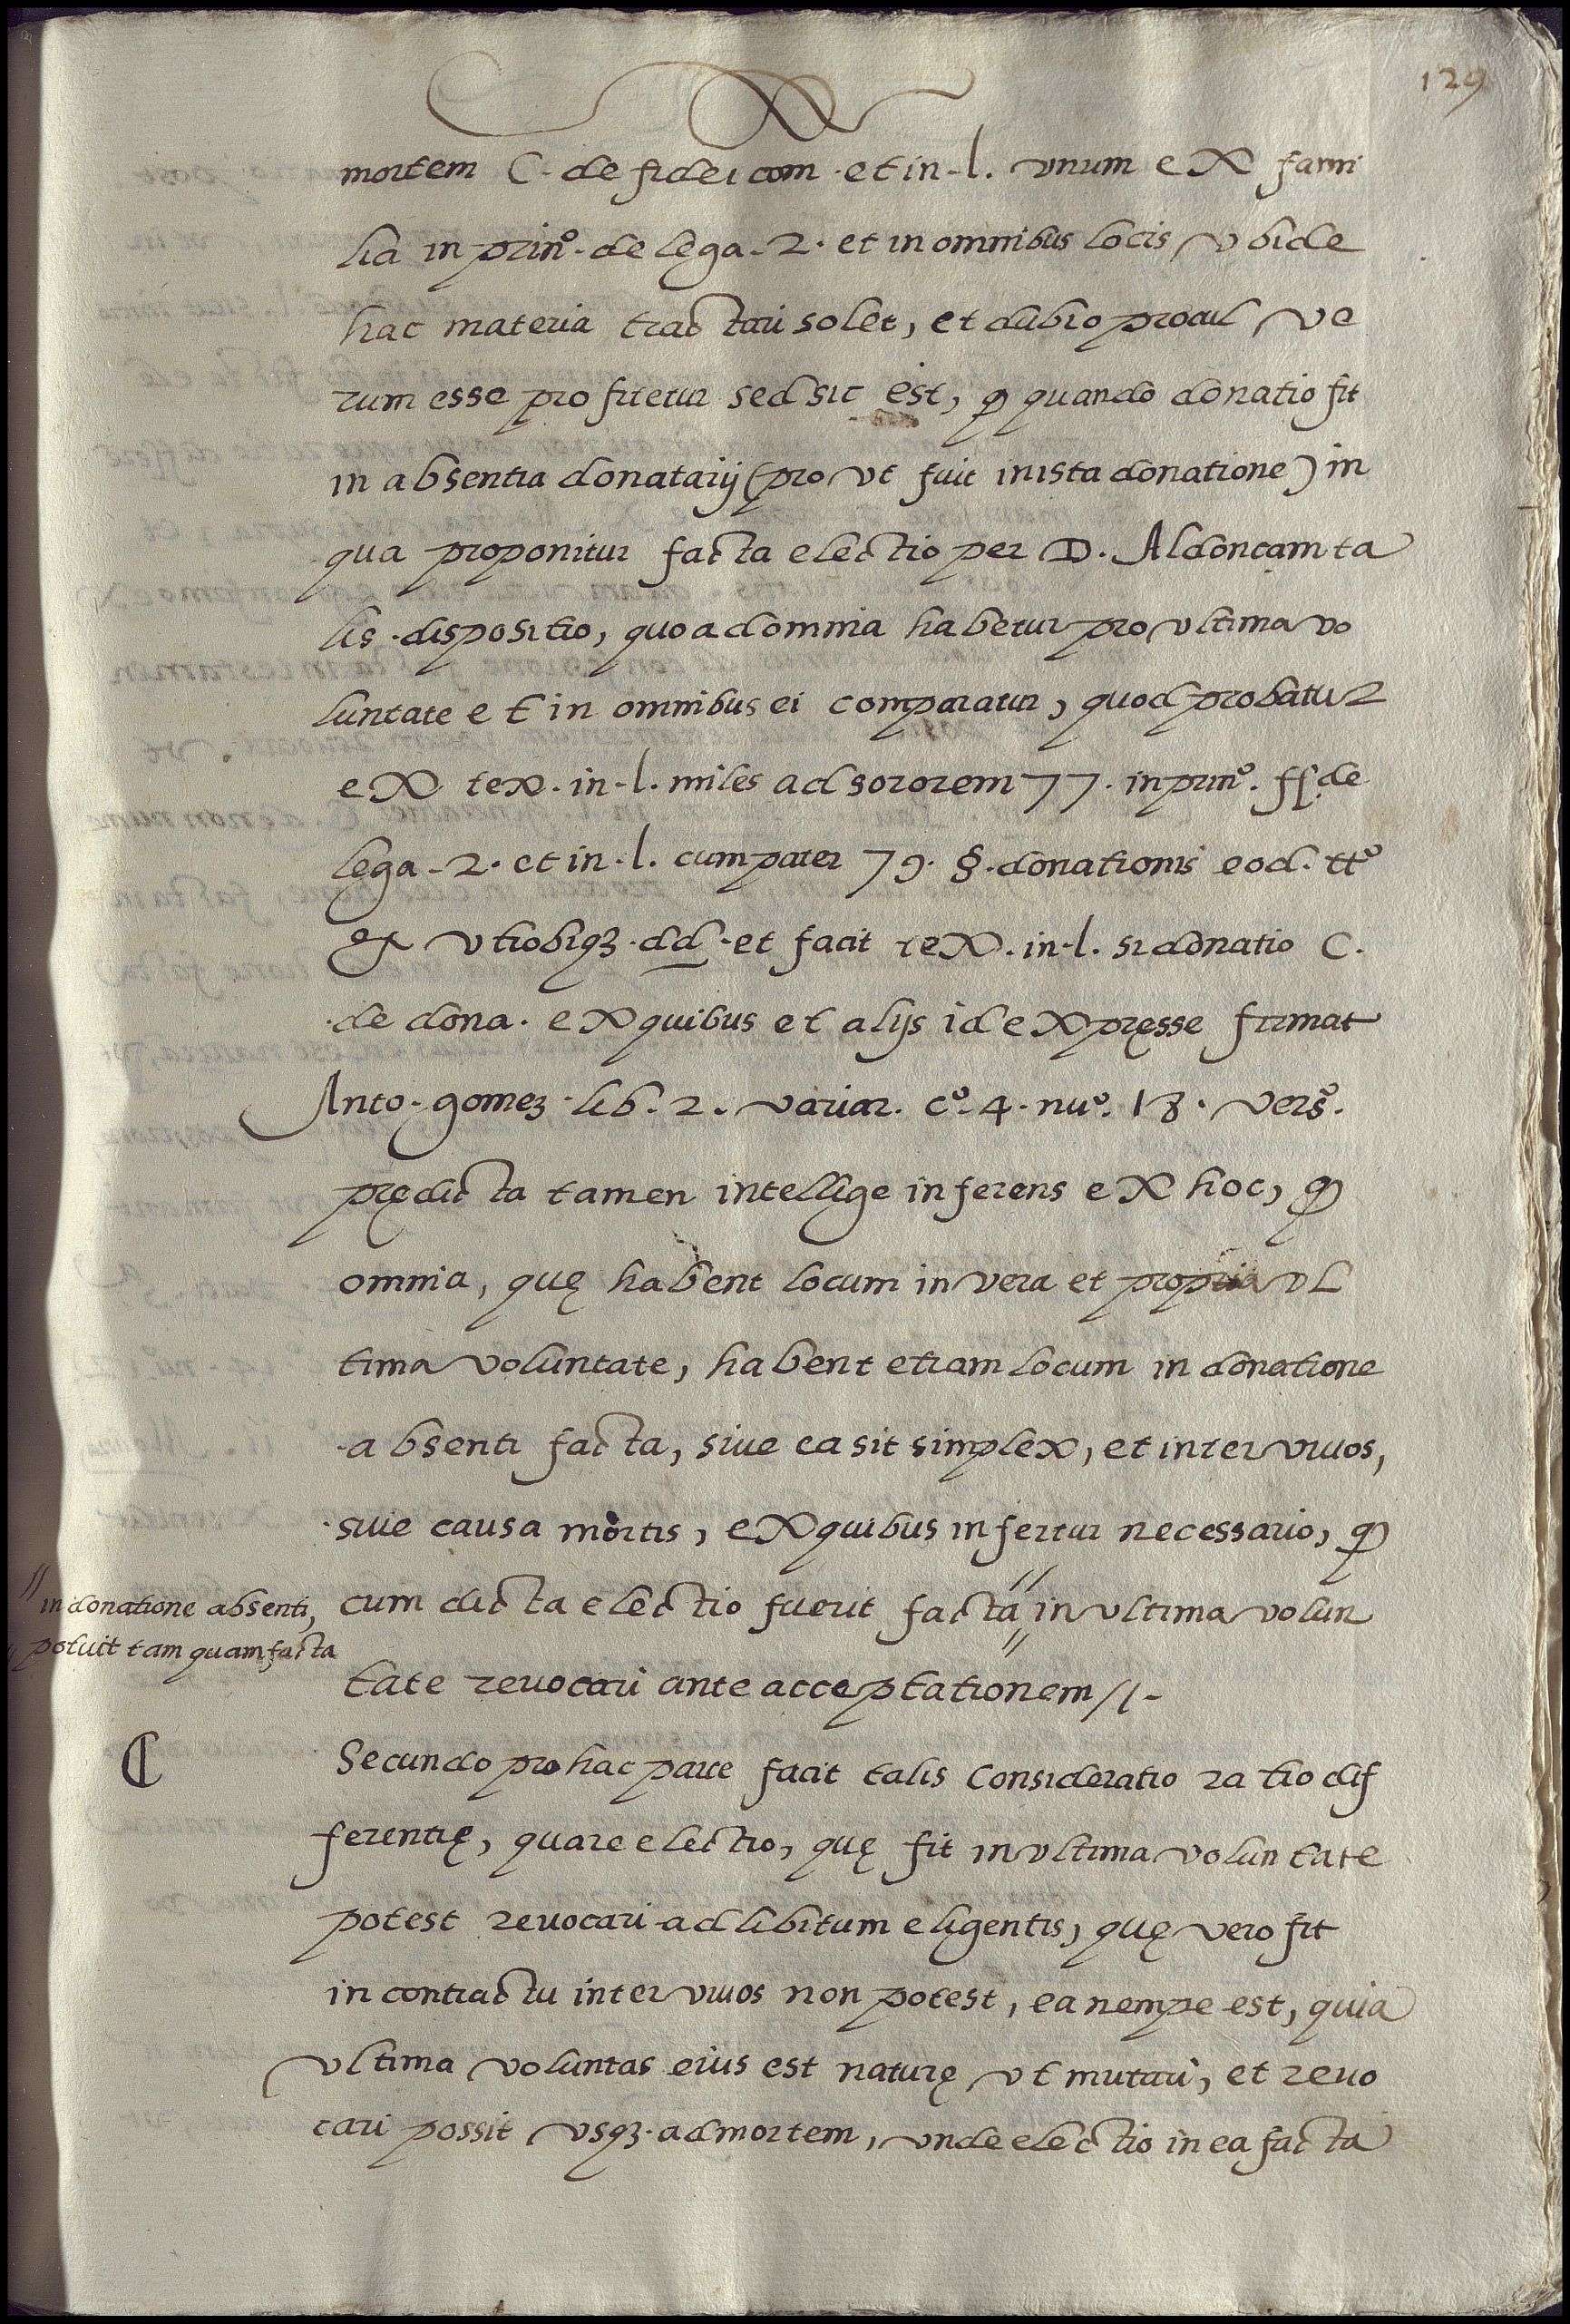 129
mortem C. de fidei com. et in. l. vnum eX fami
lia in prinº. de lega. 2. et in omnibus locis vbi de
hac materia tractari solet, et dubio procul ve
rum esse profitetur sed sic est, ꝙ quando donatio fit
in absentia donatarij (pro vt fuit in ista donatione) in
qua proponitur facta electio per D. Aldonçam ta
lis. dispositio, quo ad omnia habetur pro vltima vo
luntate et in omnibus ei comparatur, quod probatur
eX tex. in. l. miles ad sororem 77. in prinº. ff. de
lega. 2. et in. l. cum pater 79. §. donationis eod. ttº
& vtiobiqꝫ. dd. et facit teX. in. l. si donatio C.
de dona. eX quibus et alijs id eXpręsse firmat
Anto. gomez. lib. 2. variar. cº. 4. nuº. 18. versº.
prędicta tamen intellige inferens eX hoc, ꝙ
omnia, quę habent locum in vera et propria vl
tima voluntate, habent etiam locum in donatione
absenti facta, siue ea sit simplex, et inter viuos,
siue causa mortis, eX quibus infertur necessario, ꝙ
cum dicta electio fuerit facta // in vltima volun
// in donatione absenti,
// potuit tam quam facta
tate reuocari ante acceptationem //-
C Secundo pro hac parte facit talis consideratio ratio dif
ferentię, quare electio, quę fit in vltima voluntate
potest reuocari ad libitum eligentis, quę vero fit
in contractu inter viuos non potest, ea nempe est, quia
vltima voluntas eius est naturę vt mutari, et reuo
cari possit vsqꝫ. ad mortem, vnde electio in ea facta